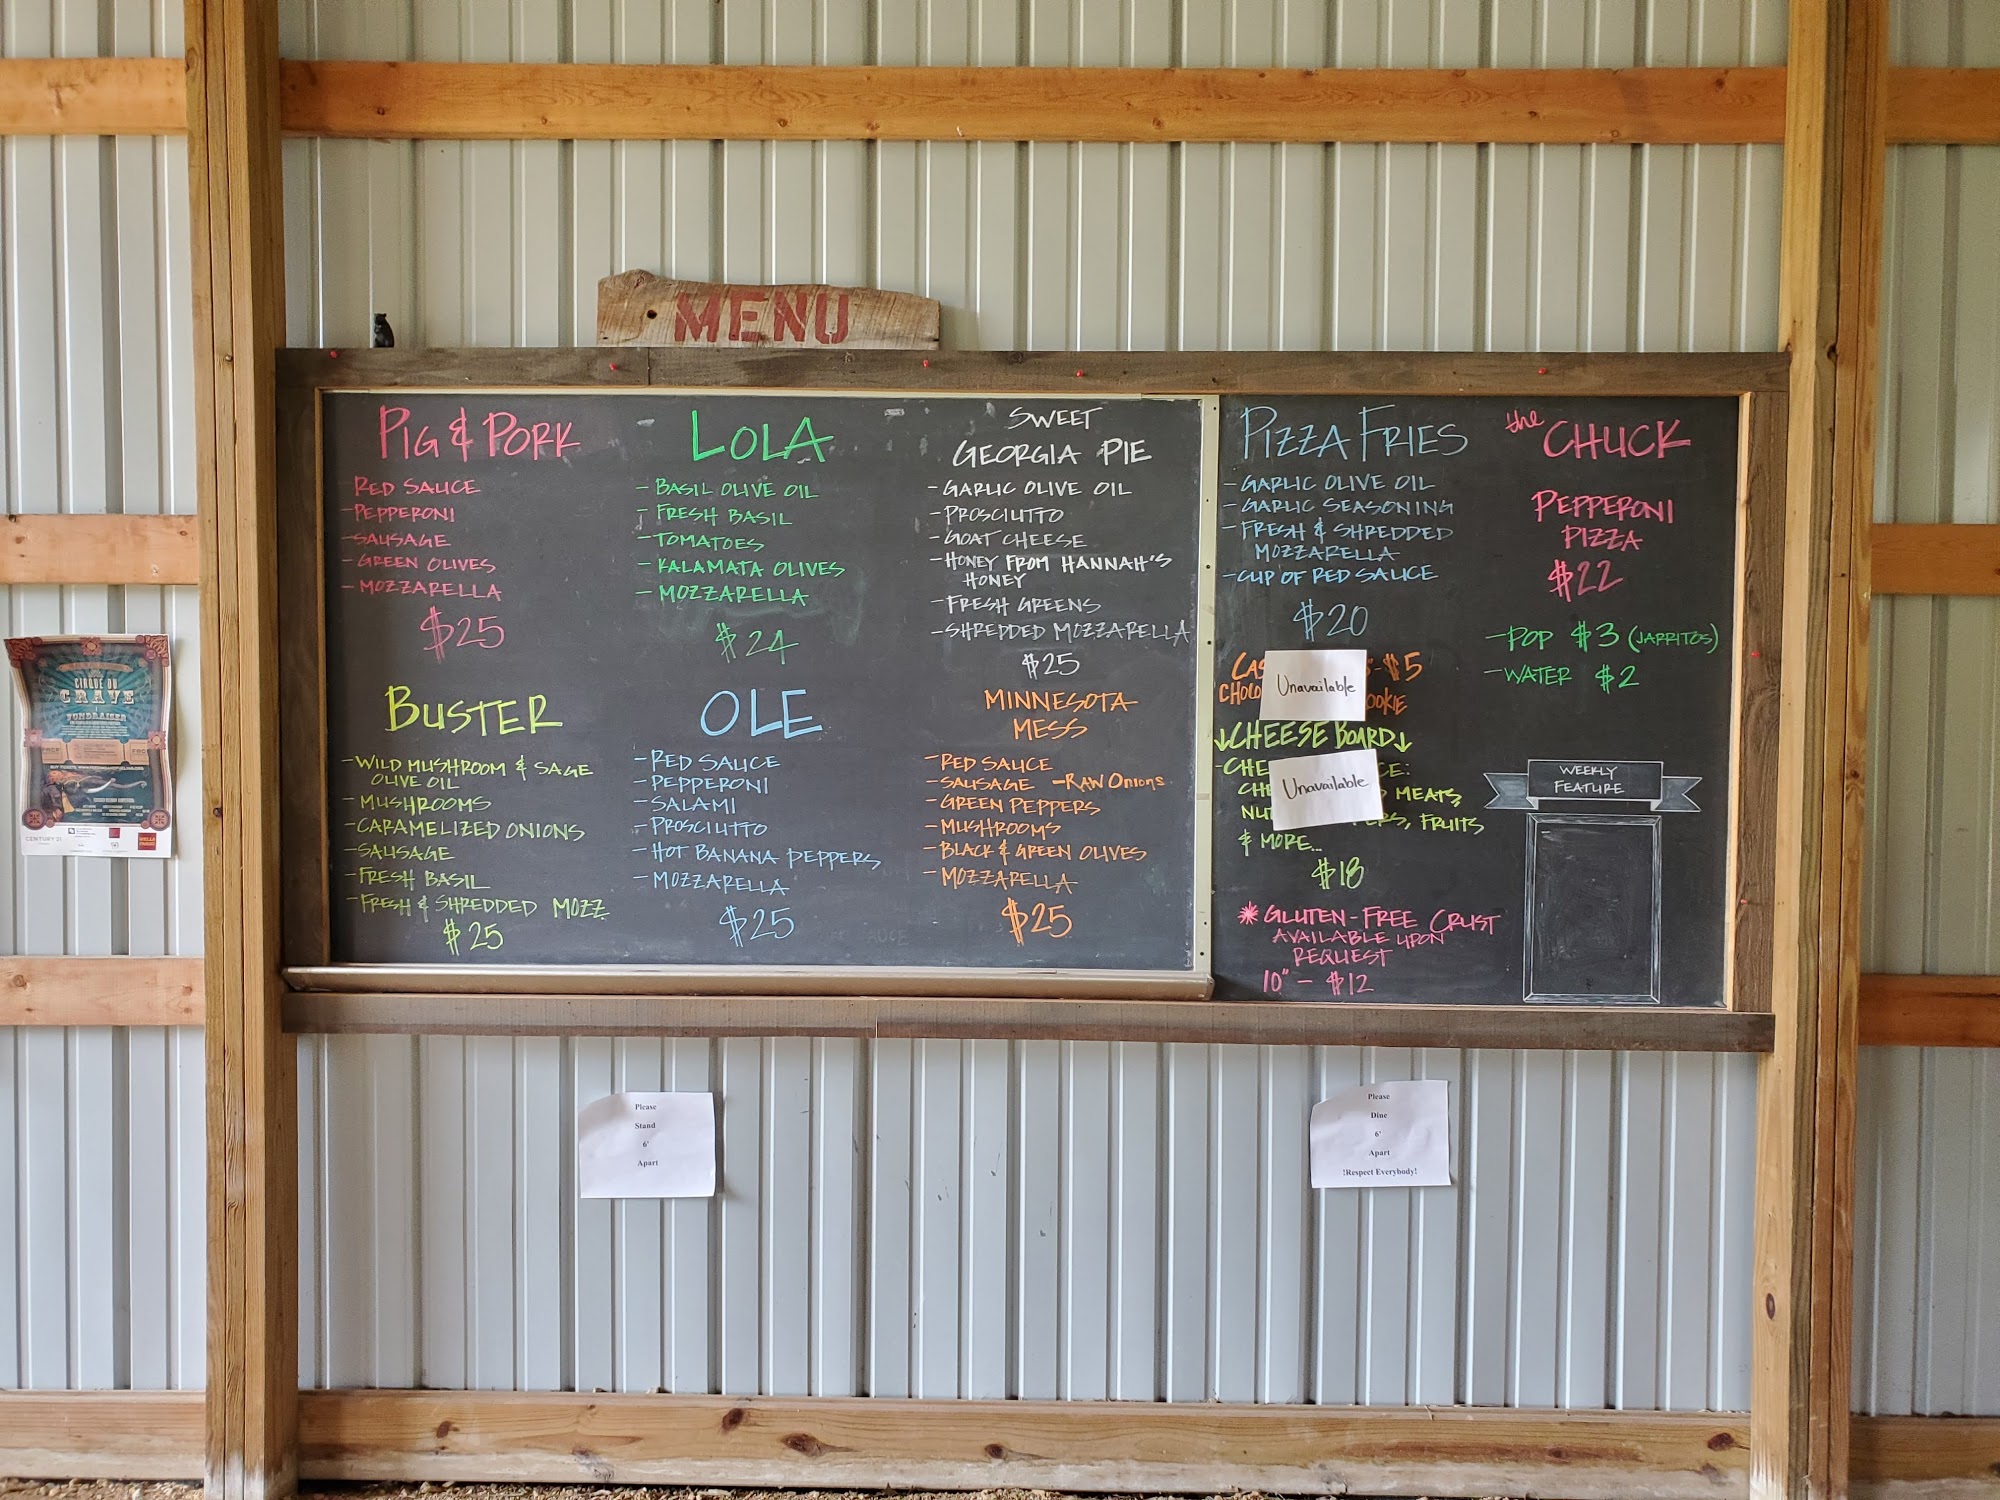 MENU
PIG & PORK
- RED SAUCE
- PEPPERONI
- SAUSAGE
- GREEN OLIVES
- MOZZARELLA
$25
LOLA
- BASIL OLIVE OIL
- FRESH BASIL
- TOMATOES
- KALAMATA OLIVES
- MOZZARELLA
$24
SWEET
GEORGIA PIE
- GARLIC OLIVE OIL
- PROSCIUTTO
- GOAT CHEESE
- HONEY FROM HANNAH'S
HONEY
- FRESH GREENS
- SHREDDED MOZZARELLA
$25
BUSTER
- WILD MUSHROOM & SAGE
OLIVE OIL
- MUSHROOMS
- CARAMELIZED ONIONS
- SAUSAGE
- FRESH BASIL
- FRESH & SHREDDED MOZZ
$25
OLE
- RED SAUCE
- PEPPERONI
- SALAMI
- PROSCIUTTO
- HOT BANANA PEPPERS
- MOZZARELLA
$25
MINNESOTA
MESS
- RED SAUCE
- SAUSAGE - RAW ONIONS
- GREEN PEPPERS
- MUSHROOMS
- BLACK & GREEN OLIVES
- MOZZARELLA
$25
PIZZA FRIES
- GARLIC OLIVE OIL
- GARLIC SEASONING
- FRESH & SHREDDED
MOZZARELLA
- CUP OF RED SAUCE
$20
- $5
Unavailable
↓CHEESE BOARD↓
Unavailable
MEATS,
FRUITS
& MORE...
$18
* GLUTEN-FREE CRUST
AVAILABLE UPON
REQUEST
10" - $12
the CHUCK
PEPPERONI
PIZZA
$22
- POP $3 (JARRITOS)
- WATER $2
WEEKLY
FEATURE
CIRQUE DU
CRAVE
FUNDRAISER
CENTURY 21
Please
Stand
6'
Apart
Please
Dine
6'
Apart
!Respect Everybody!